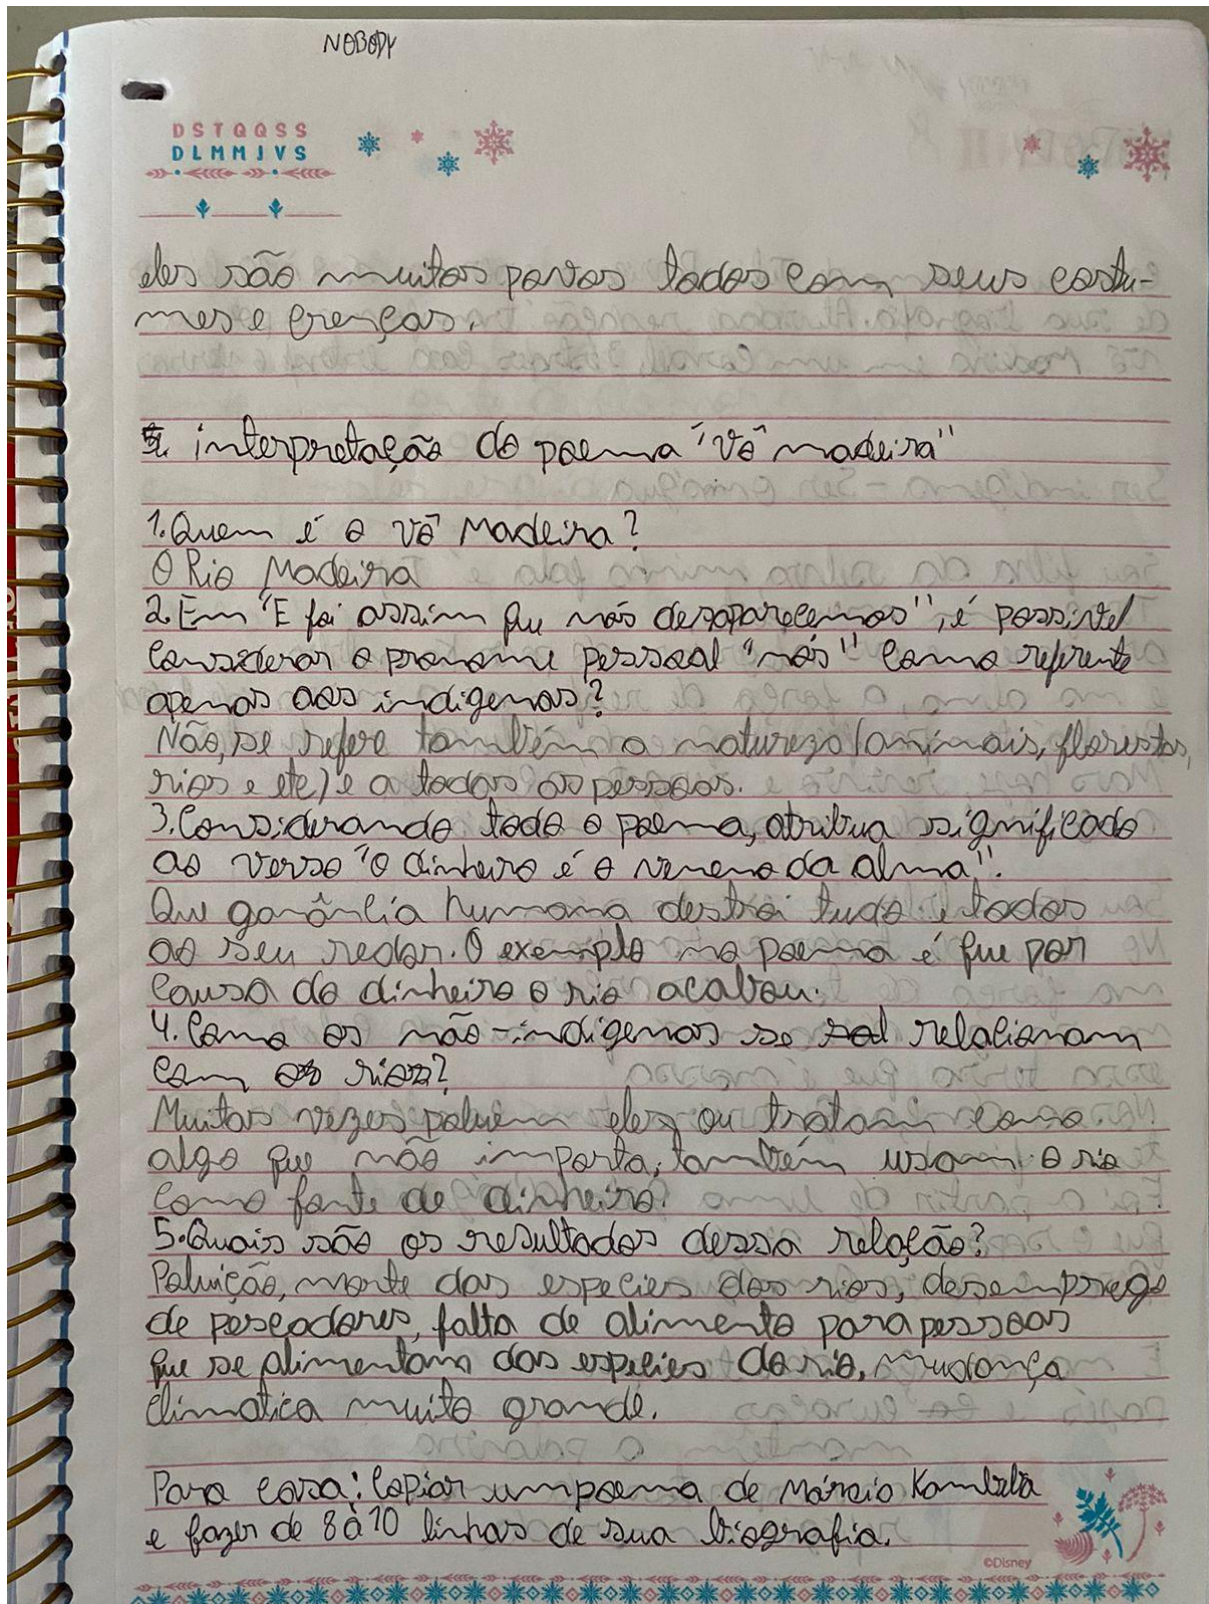 NOBODY
D S T Q Q S S
D L M M J V S
eles são muitos povos todos com seus costu-
mes e crenças.
interpretação do poema "Vô madeira"
1. Quem é o vô Madeira?
O Rio Madeira
2. Em "E foi assim que nós desaparecemos", é possivel
considerar o pronome pessoal "nós" como referente
apenas aos indigenas?
Não, se refere também a natureza (animais, florestas,
rios e etc) e a todas as pessoas.
3. Considerando todo o poema, atribua significado
ao verso "o dinheiro é o veneno da alma".
Que ganância humana destroi tudo e todos
ao seu redor. O exemplo no poema é que por
causa do dinheiro o rio acabou.
4. Como os não-indigenas se relacionam
com rio?
Muitas vezes poluem eles ou tratam como
algo que não importa, também usam o rio
como fonte de dinheiro.
5. Quais são os resultados dessa relação?
Poluição, morte das especies dos rios, desemprego
de pescadores, falta de alimento para pessoas
que se alimentam das especies do rio, mudança
climatica muito grande.
Para casa: Copiar um poema de Márcia Kambeba
e fazer de 8 à 10 linhas de sua biografia.
©Disney